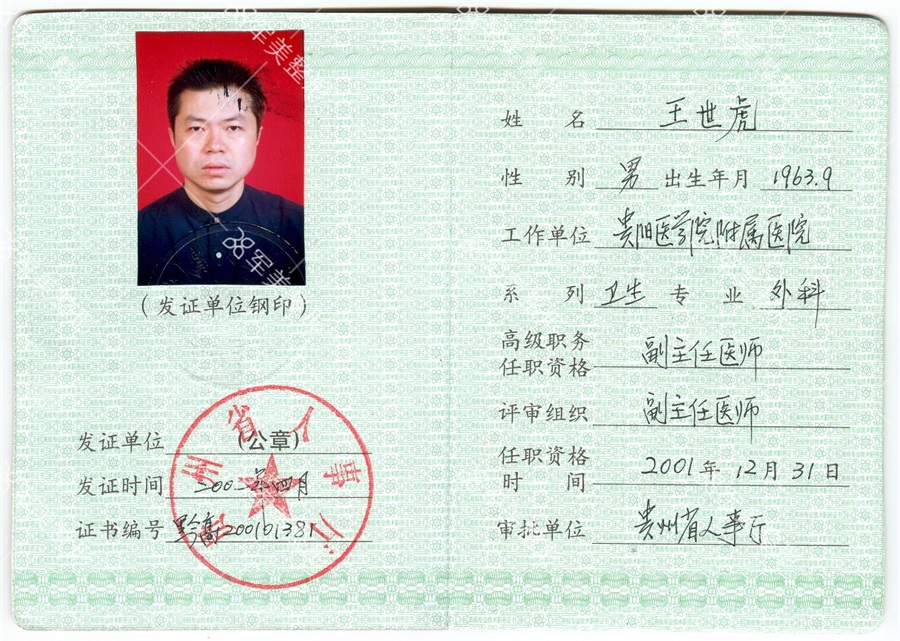 军美整
军美
(发证单位钢印)
发证单位 (公章)
发证时间 二00二年四月
证书编号 黔高200101381
贵州省人事厅
姓 名 王世虎
性 别 男 出生年月 1963.9
工作单位 贵阳医学院附属医院
系 列 卫生 专 业 外科
高级职务
任职资格 副主任医师
评审组织 副主任医师
任职资格
时 间 2001年12月31日
审批单位 贵州省人事厅